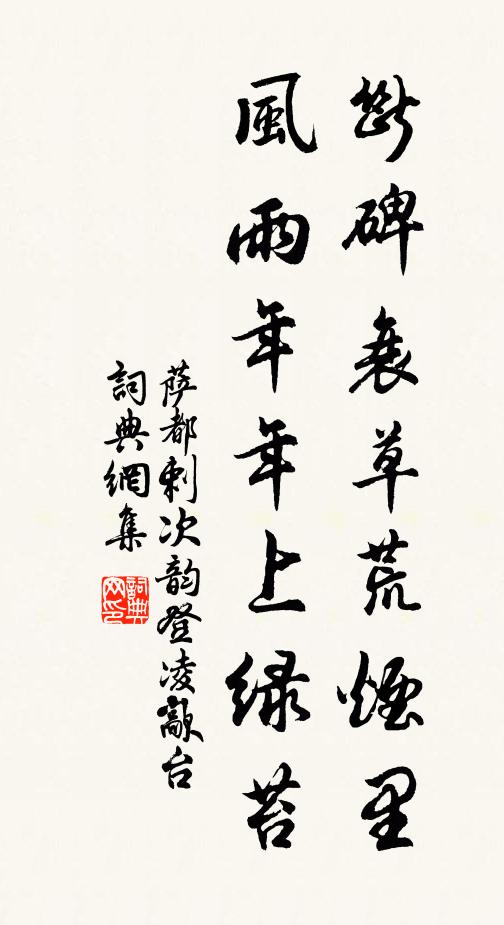 斷碑衰草荒煙里
風雨年年上綠苔
薩都剌次韵登凌歊台
詞典網集
詞典網印